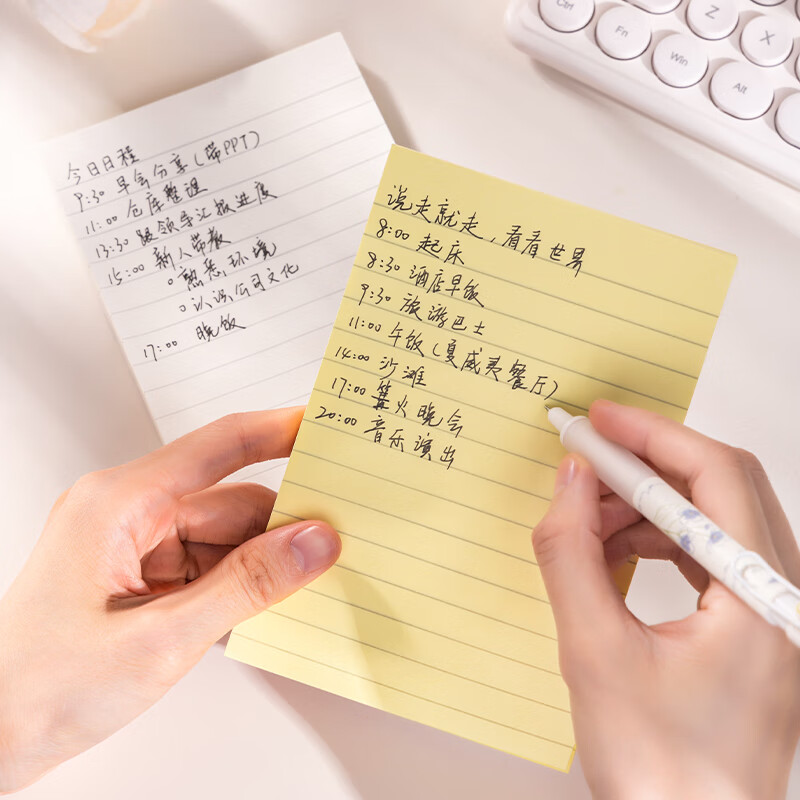 今日日程
9:30 早会分享(带PPT)
11:00 仓库整理
13:30 跟领导汇报进度
15:00 新人带教
○ 熟悉环境
○ 认识公司文化
17:00 晚饭
说走就走,看看世界
8:00 起床
8:30 酒店早饭
9:30 旅游巴士
11:00 午饭(夏威夷餐厅)
14:00 沙滩
17:00 篝火晚会
20:00 音乐演出
Ctrl
Fn
Win
Alt
Z
X